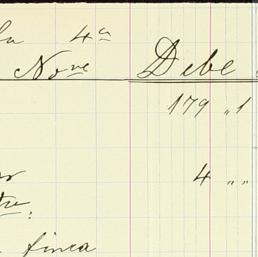 la 4ª
Nove Debe
179 „1
4 „ „
tre.
finca